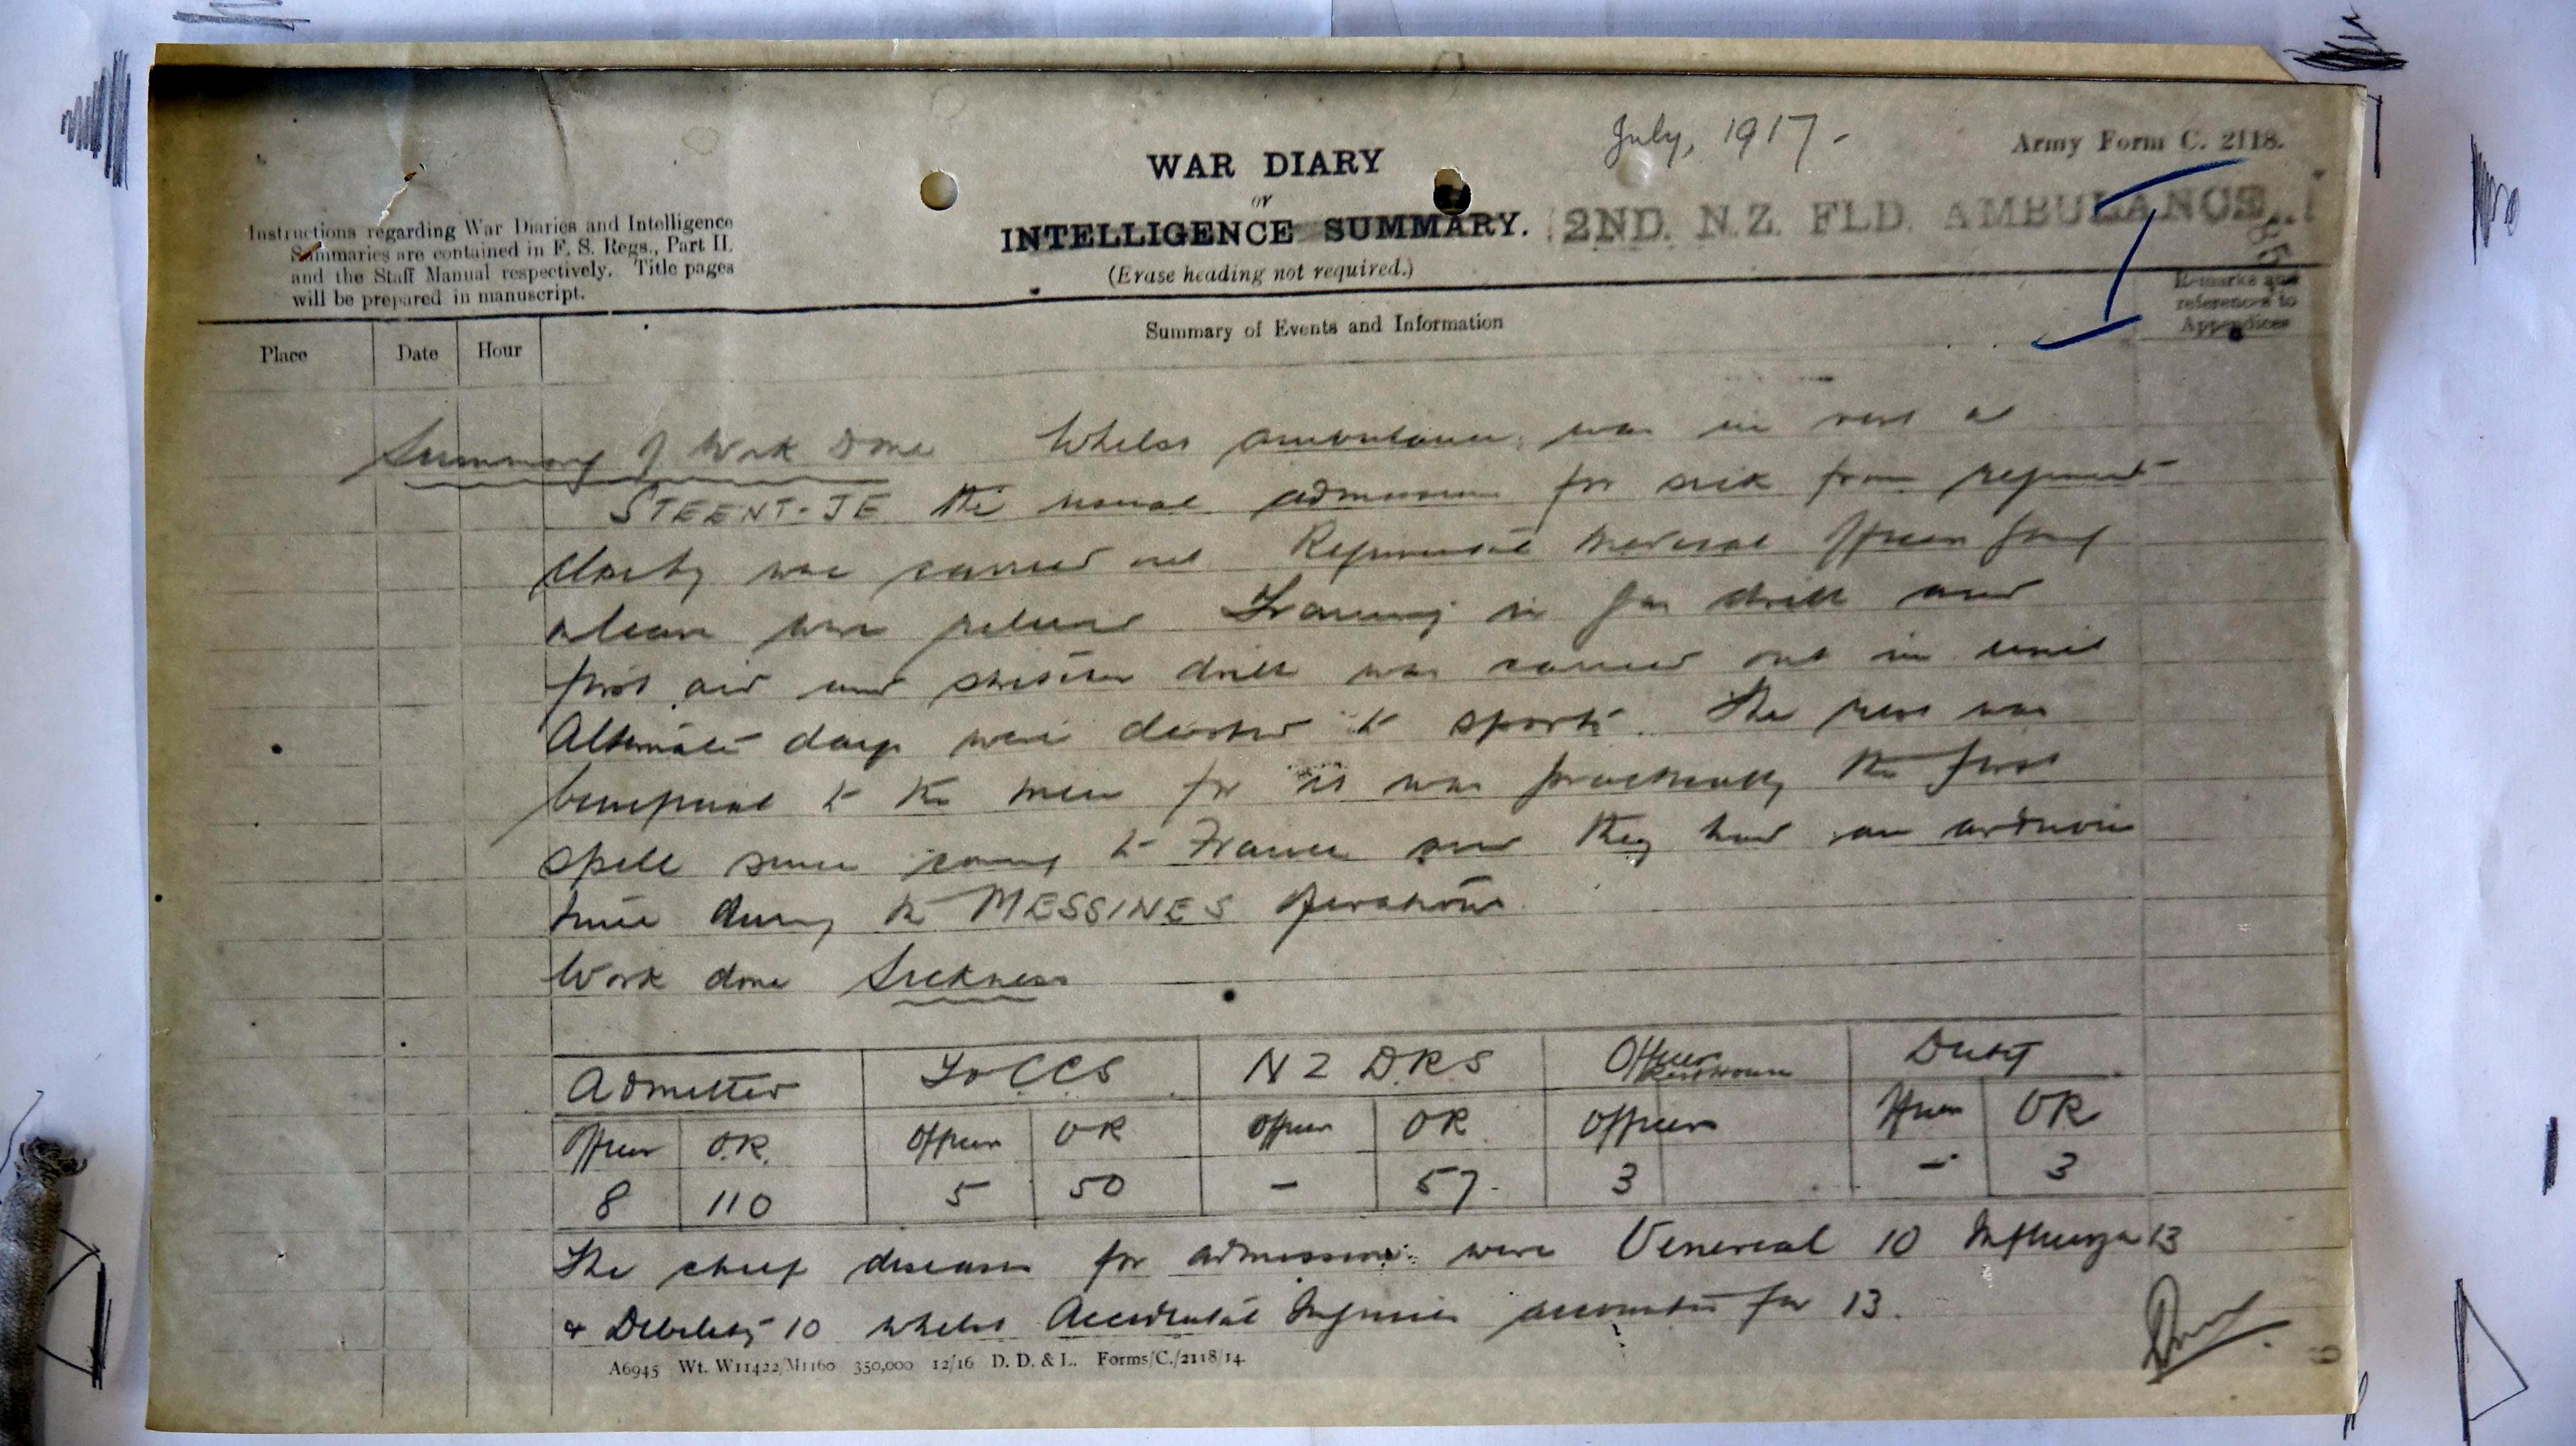 July, 1917.
Army Form C. 2118.
WAR DIARY
or
INTELLIGENCE SUMMARY.
(Erase heading not required.)
2ND. N.Z. FLD. AMBULANCE
Instructions regarding War Diaries and Intelligence
Summaries are contained in F. S. Regs., Part II.
and the Staff Manual respectively. Title pages
will be prepared in manuscript.
Remarks and
references to
Appendices
Place
Date
Hour
Summary of Events and Information
Summary of Work Done Whilst ambulance was in rest at
STEENT-JE the usual admission for sick from regiment
was carried out Regimental Medical Officer going
on leave were relieved Training in gas drill and
first aid and stretcher drill was carried out in unit
Alternate days were devoted to sports. The rest was
beneficial to the men for it was practically the first
spell since coming to France and they had an arduous
time during the MESSINES operations
Work done Sickness
Admitted To CCS N Z DRS Officer Rest house Duty
Officer O.R. Officer OR Officer OR Officers Officer OR
8 110 5 50 - 57. 3 - 3
The chief diseases for admission were Venereal 10 Influenza 13
& Debility 10 whilst Accidental Injuries accounted for 13.
A6945 Wt. W11422/M1160 350,000 12/16 D. D. & L. Forms/C./2118/14